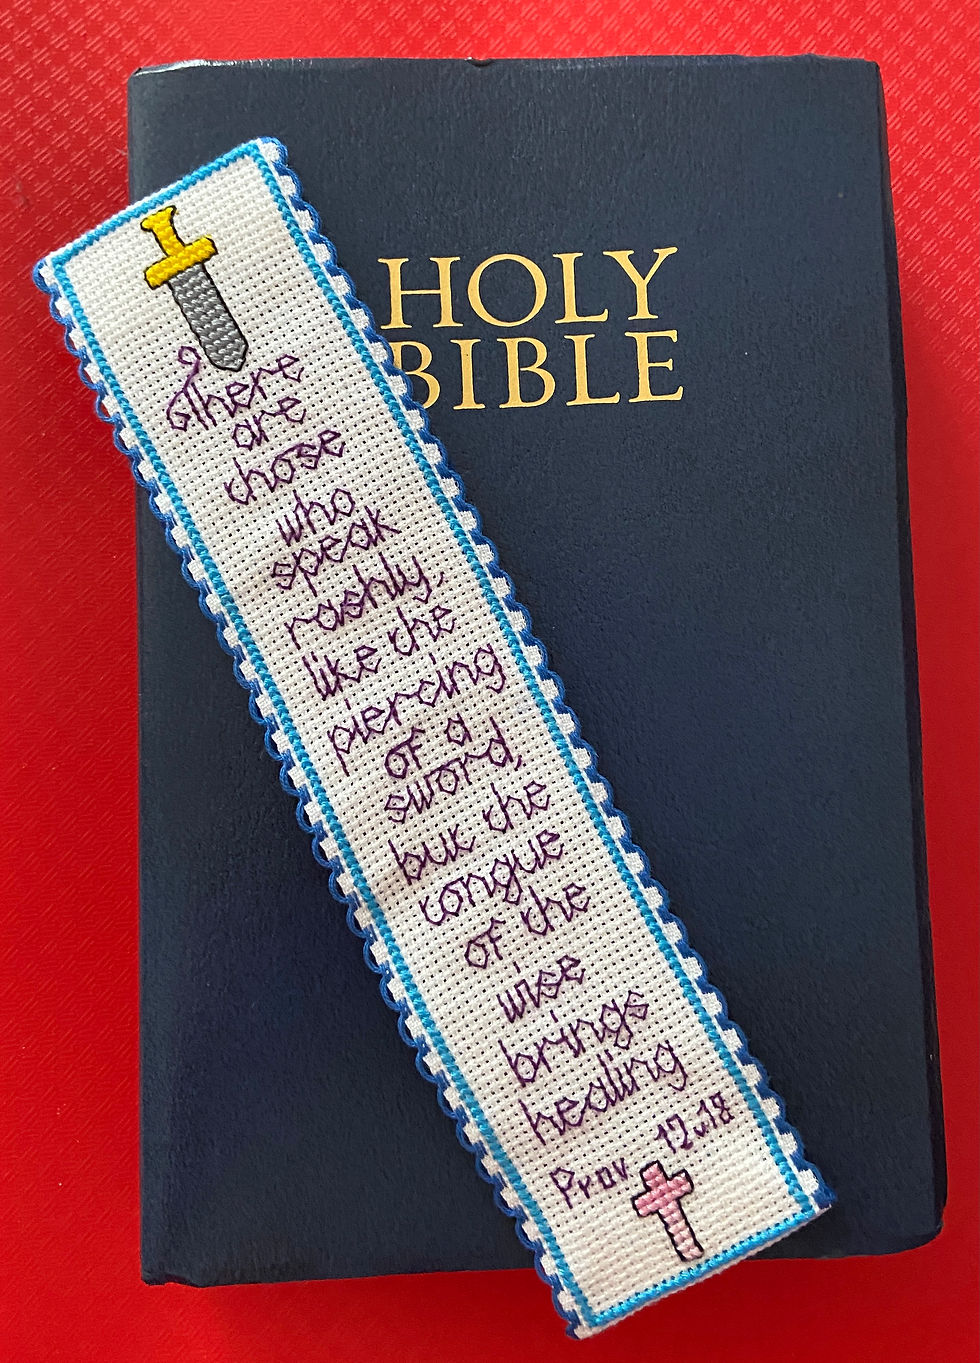 HOLY
BIBLE
There
are
those
who
speak
rashly,
like the
piercing
of a
sword,
but the
tongue
of the
wise
brings
healing
Prov 12v18